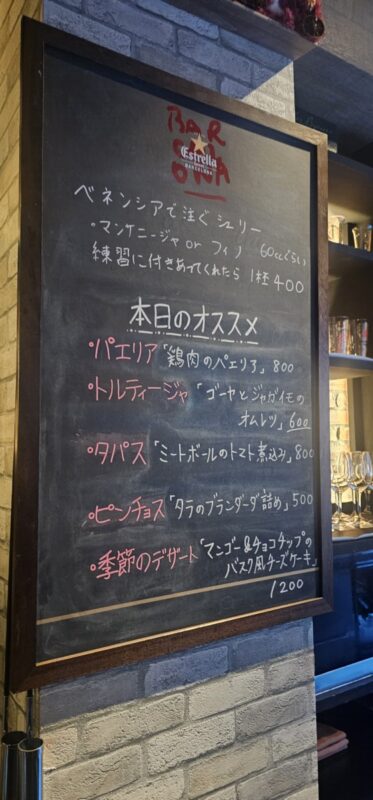 BAR
CEL
ONA
Estrella
BARCELONA
ベネンシアで注ぐシェリー
・マンサニージャ or フィノ 60ccぐらい
練習に付きあってくれたら 1杯 400
本日のオススメ
・パエリア「鶏肉のパエリア」800
・トルティージャ「ゴーヤとジャガイモの
オムレツ」600
・タパス「ミートボールのトマト煮込み」800
・ピンチョス「タラのブランダーダ詰め」500
・季節のデザート「マンゴー&チョコチップの
バスク風チーズケーキ」
1200